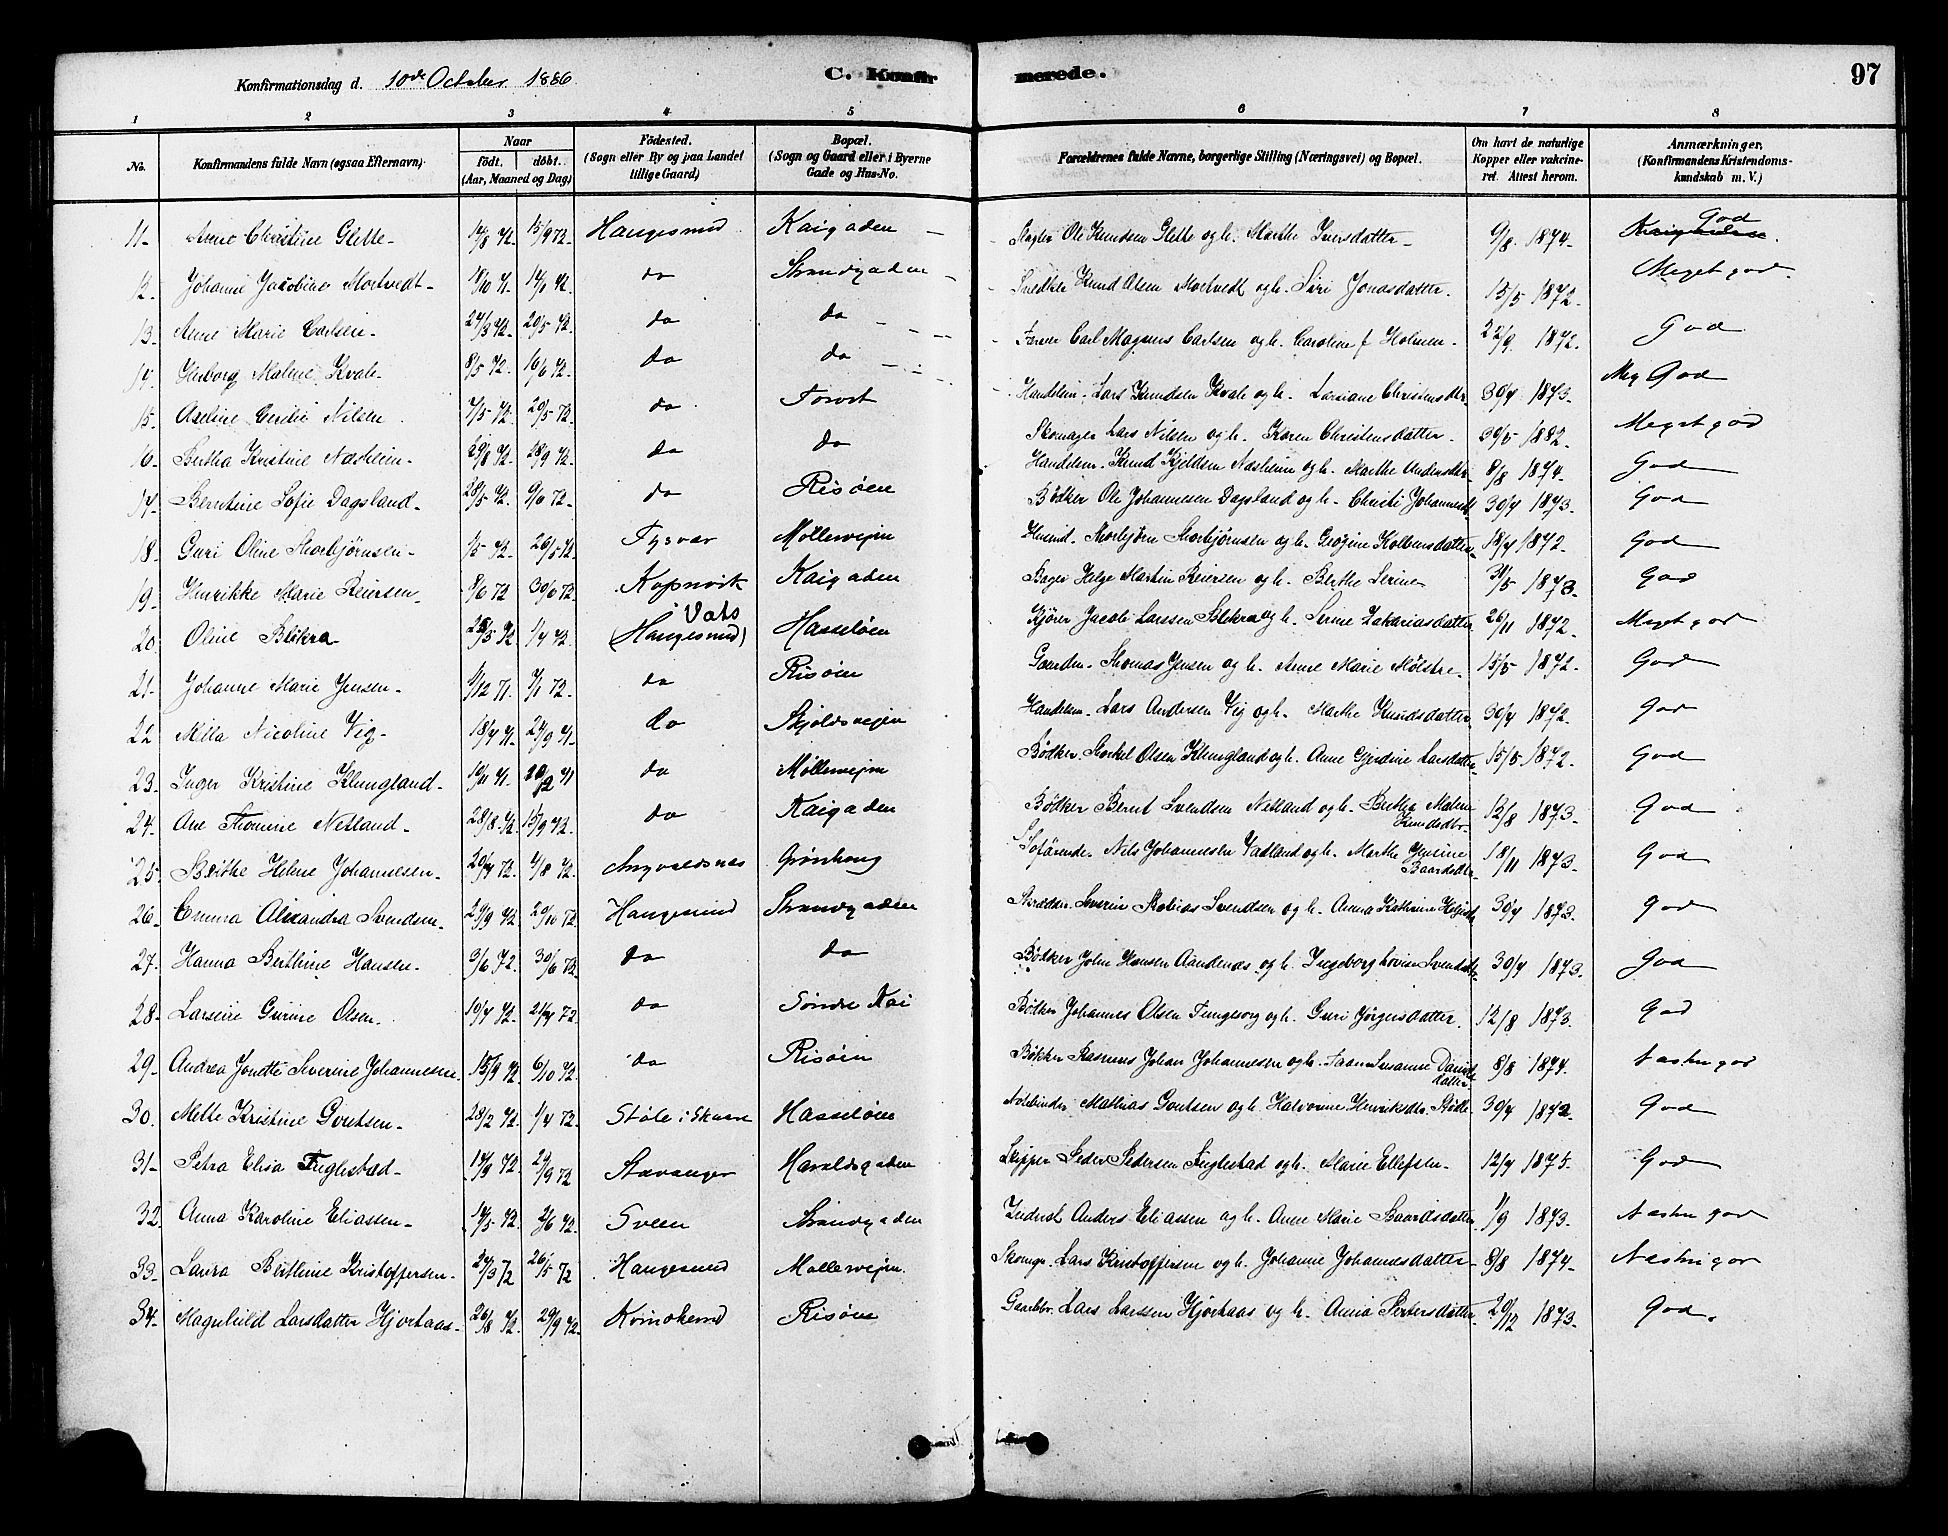 Konfirmationsdag d. 10de October 1886 C. Konfirmerede. 97
1 2 3 4 5 6 7 8
No. Konfirmandens fulde Navn (ogsaa Efternavn). Naar födt. döbt. (Aar, Maaned og Dag) Födested. (Sogn eller By og paa Landet tillige Gaard.) Bopæl. (Sogn og Gaard eller i Byerne Gade og Hus-No. Forældrenes fulde Navne, borgerlige Stilling (Næringsvei) og Bopæl. Om havt de naturlige Kopper eller vakcineret. Attest herom. Anmærkninger, (Konfirmandens Kristendomskundskab m. V.)
11. Anne Christine Glette 14/8 72. 15/9 72. Haugesund Kaigaden Ole Knudsen Glette og h. Marthe Iversdatter 9/8 1874. God
12. Johanne Jacobine Mortvedt 18/10 71. 14/1 72. do Strandgaden Snedker Knud Olsen Mortvedt og h. Siri Jonasdatter 15/5 1872. Meget god
13. Anne Marie Carlsen 24/3 72. 20/5 72. do do Farver Carl Magnus Carlsen og h. Caroline f Holmen 22/9 1872. God
14. Herborg Malene Kvale 8/5 72. 16/6 72. do do Handelsm. Lars Knudsen Kvale og h. Larsiane Christensdtr 30/4 1873. Meg God
15. Axeline Cecilie Nilsen 7/5 72. 20/5 72. do Torvet Skomager Lars Nilsen og h. Karen Christensdatter 30/5 1882. Meget god
16. Bertha Kristine Næsheim 29/8 72. 28/9 72. do do Handelsm. Knud Kjeldsen Næsheim og h. Marthe Andersdtr 8/8 1874. God
17. Berntine Sofie Dagsland 28/5 72. 9/6 72. do Risöen Bödker Ole Johannesen Dagsland og h. Christi Johannesd 30/4 1873. God
18. Guri Oline Thorbjørnsen /5 72. 26/5 72. Tysvær Møllerveien Husmd. Thorbjørn Thorbjørnsen og h. Gurine Kolbensdatter 18/4 1872. God
19. Henrikke Marie Reiersen 8/6 72 30/6 72. Kopervik Kaigaden Bager Helge Martin Reiersen og h. Berthe Serine 31/5 1873. God
20. Oline Blikra 25/3 72 1/4 72. i Vats (Haugesund) Hasseløen Kjører Jacob Larssen Blikra og h. Serine Zakariasdatter 26/11 1872. Meget god
21. Johanne Marie Jensen 9/12 71. 7/1 72. do Risøen Thomas Jensen og h. Anne Marie Mølstre 15/5 1872. God
22. Milla Nicoline Vig 18/4 71. 24/9 71. do Skjoldsveien Handelsm. Lars Andersen Vig og h. Marthe Knudsdatter 30/4 1872. God
23. Inger Kristine Klungland 19/11 71. 20/12 71 do Møllerveien Bödker Torkel Olsen Klungland og h. Anne Gjerdine Larsdatter 15/5 1872. God
24. Ane Thomine Netland 28/8 72. 15/9 72. do Kaigaden Bödker Bernt Svendsen Netland og h. Bertha Malene Knudsdtr. 12/8 1873. God
25. Berthe Helene Johannesen 20/7 72. 4/8 72. Augvaldsnæs Grønhaug Søfarende Nils Johannesen Vadland og h. Marthe Jensine Baardsdtr 18/11 1873. God
26. Emma Alexandra Svendsen 29/9 72. 29/10 72. Haugesund Strandgaden Skrædder Severin Tobias Svendsen og h. Anna Kathrine 30/4 1873. God
27. Hanna Berthine Hansen 3/6 72. 30/6 72. do do Bødker John Hansen Aandenæs og h. Ingeborg Lovise Svendsd 30/4 1873. God
28. Larsine Gurine Olsen 10/4 72. 21/4 72. do Søndre Kai Bødker Johannes Olsen Tungesvg og h. Guri Jørgensdatter 12/8 1873. God
29. Andrea Jonette Severine Johannesen 15/9 72. 6/10 72. do Risøen Bøkker Rasmus Johan Johannesen og h. Susanne Danielsdatter 8/8 1874. Næsten god
30. Mette Kristine Govertsen 28/2 72. 1/4 72. Støle i Skaare Hasseløen Notebinder Mathias Govertsen og h. Halvorine Henriksdtr. Støle 30/4 1872. God
31. Petra Elisa Fuglestad 14/9 72. 29/9 72 Stavanger Haraldsgaden Skipper Peder Pedersen Fuglestad og h. Marie Ellefsen 12/4 1875. God
32. Anna Karoline Eliassen 14/5 72. 2/6 72. Sveen Strandgaden Anders Eliassen og h. Anne Marie Baardsdatter 1/9 1873. Næsten god
33. Laura Berthine Kristoffersen 29/3 72 26/5 72 Haugesund Møllerveien Skomgr. Lars Kristoffersen og h. Johanne Johannesdatter 8/8 1874. Næsten god
34. Magnhild Larsdatter Hjorthaas 26/8 72. 29/9 72. Risøen Gaardbr. Lars Larssen Hjorthaas og h. Anna 20/12 1873. God.